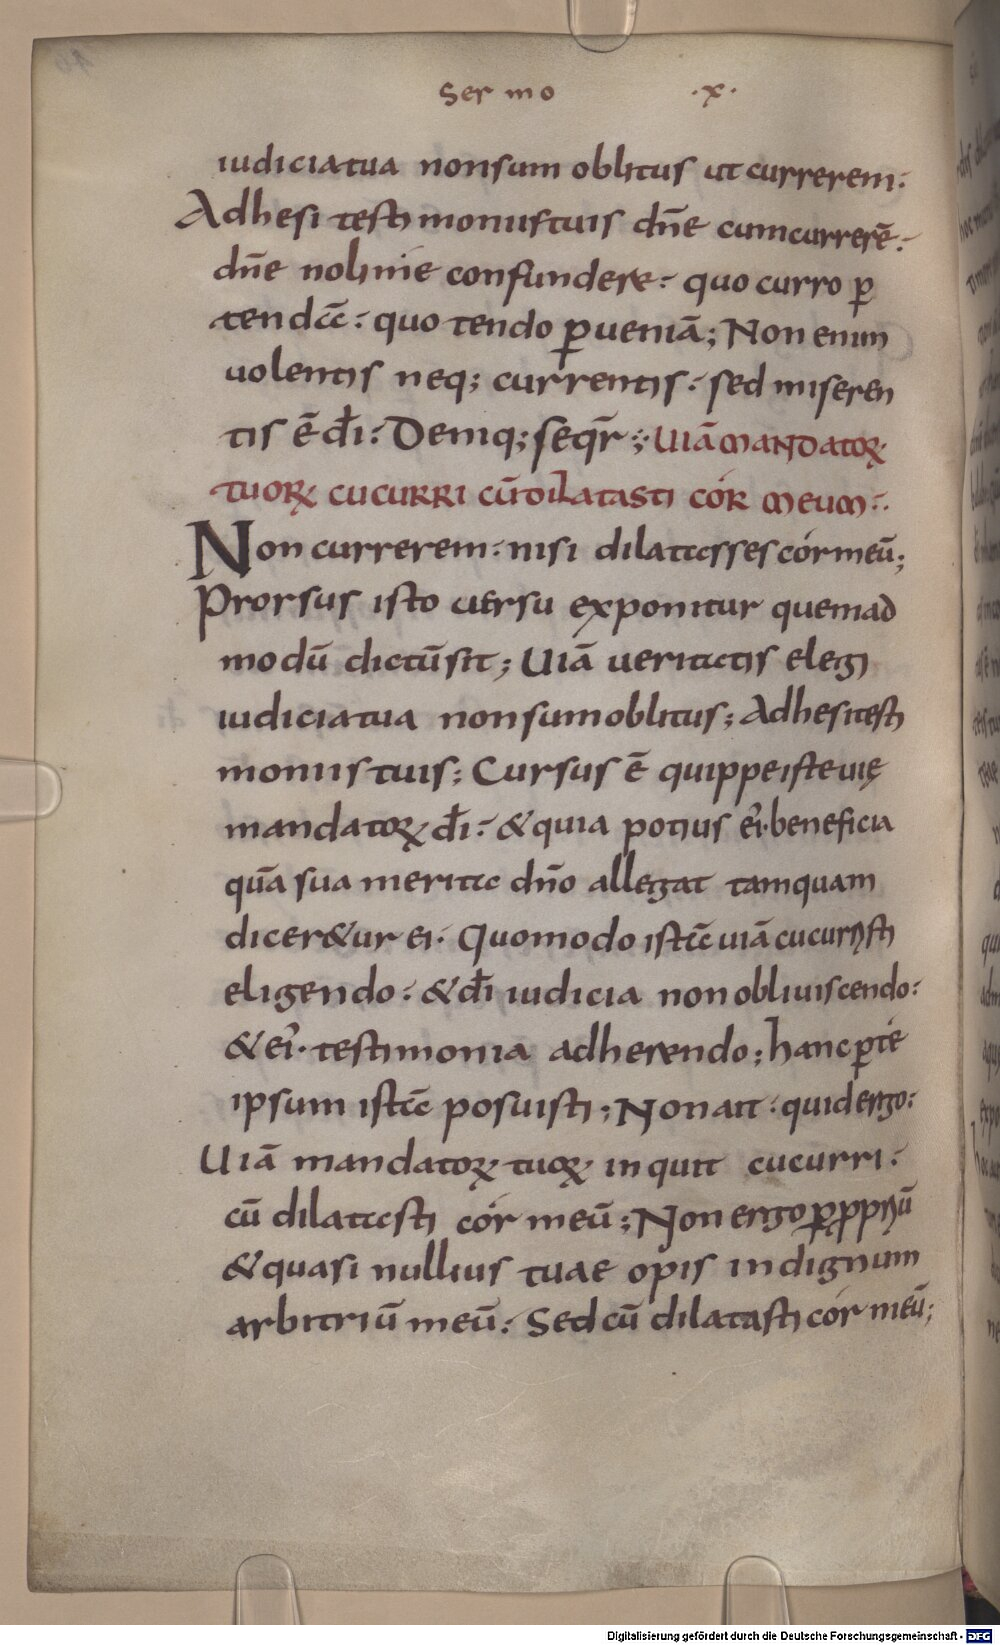 Sermo ·x·
iudicia tua non sum oblitus ut currerem:
Adhesi testimoniis tuis dñe cum currerē:
dñe noli me confundere: quo curro ꝑ
tendã: quo tendo ꝑueniā; Non enim
volentis neq; currentis: sed miseren
tis ē dı̄: Deniq; seqr̄: Uiā mandatoꝝ
tuoꝝ cucurri cū dilatasti cor meum:
Non currerem: nisi dilatasses cor meū;
Prorsus isto versu exponitur quemad
modū dictū sit; Uiā veritatis elegi
iudicia tua non sum oblitus; Adhesi testi
moniis tuis; Cursus ē quippe iste uię
mandatoꝝ dı̄: & quia potius eı̄· beneficia
quā sua merita dño allegat tamquam
dicer&ur ei· Quomodo istā uiā cucurristi
eligendo: & dı̄ iudicia non obliuiscendo:
& eı̄· testimonia adherendo; hanc ꝑ te
ipsum ista posuisti; Non ait: quid ergo:
Uiā mandatoꝝ tuoꝝ inquit cucurri:
cū dilatasti cor meū; Non ergo ꝑ ꝓpriū
& quasi nullius tuae opis indignum
arbitriū meū: Sed cū dilatasti cor meū;
Digitalisierung gefördert durch die Deutsche Forschungsgemeinschaft - DFG